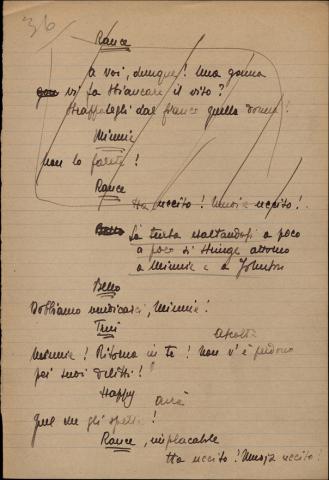 36
Rance
A voi, dunque! Una gonna
vi fa sbiancare il viso?
Strappategli dal fianco quella donna!
Minnie
Non lo farete!
Rance
Ha ucciso! Minnie ucciso!
La turba esaltandosi a poco
a poco si stringe attorno
a Minnie e a Johnson
Bello
Dobbiamo vendicarci, Minnie!
Trin
ascolta
Minnie! Ritorna in te! Non v'è perdono
pei suoi delitti!
Happy
avrà
Quel che gli spetta!
Rance, implacabile
Ha ucciso! Minnie ucciso!